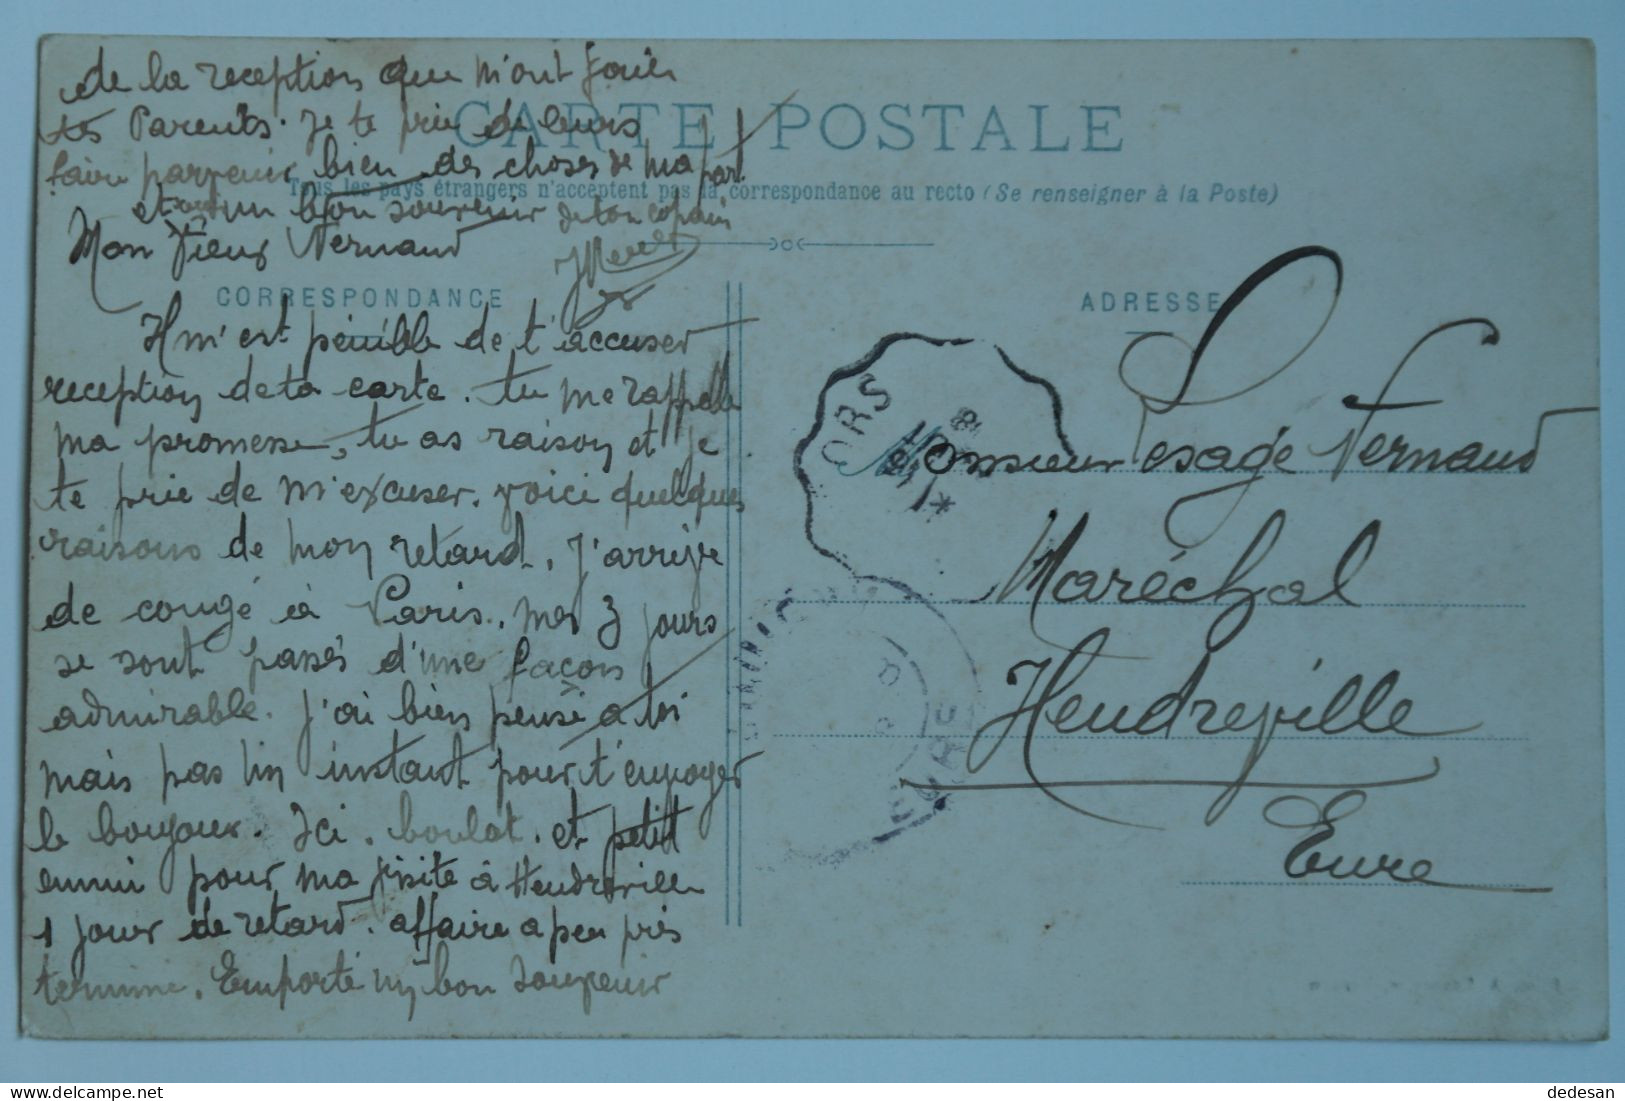 de la reception que m'ont faites
tes Parents. Je te prie de leurs
faire parvenir bien des choses de ma part
et un bon souvenir de ton copain
CARTE POSTALE
Tous les pays étrangers n'acceptent pas la correspondance au recto (Se renseigner à la Poste)
CORRESPONDANCE
Mon Vieux Fernand
Il m'est pénible de t'accuser
reception de ta carte. tu me rappelle
ma promesse, tu as raison et je
te prie de m'excuser. Voici quelques
raisons de mon retard. J'arrive
de congé à Paris. mes 3 jours
se sont passés d'une façon
admirable. J'ai bien pensé à toi
mais pas un instant pour t'envoyer
le bonjour. Ici. boulot. et petit
ennui pour ma visite à Heudreville
1 jour de retard. affaire a peu près
terminé. Emporté un bon souvenir
ADRESSE
ORS
Monsieur Lesage Fernand
Maréchal
Heudreville
Eure
EURE
dedesan